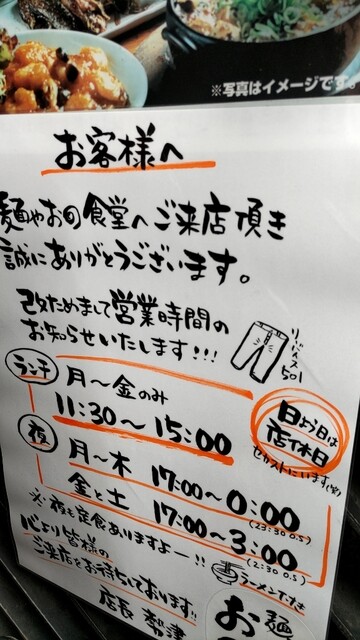 ※写真はイメージです。
お客様へ
麺やお的食堂へご来店頂き
誠にありがとうございます。
改ためまして営業時間の
お知らせいたします!!!
リーバイス
501
ランチ 月〜金のみ
11:30〜15:00
日よう日は
店休日
セカストにいます(笑)
夜 月〜木 17:00〜0:00
(23:30 O.S)
金と土 17:00〜3:00
(2:30 O.S)
※夜も定食ありますよー!!
ラーメンだヨ
心より皆様の
ご来店をお待ちしております!!
店長
麺
お